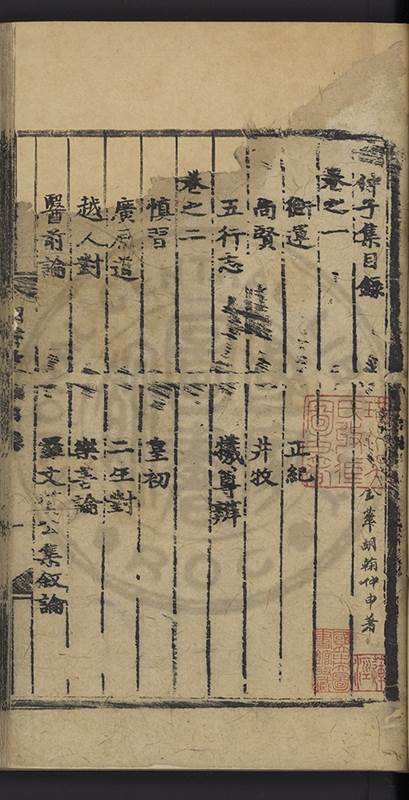 子集目錄
金華胡翰仲申著
卷之一
衡運 正紀
尚賢 井牧
五行志 犧尊辨
卷之二
慎習 皇初
廣原道 二生對
越人對 樂善論
醫前論 羅文質公集敘論